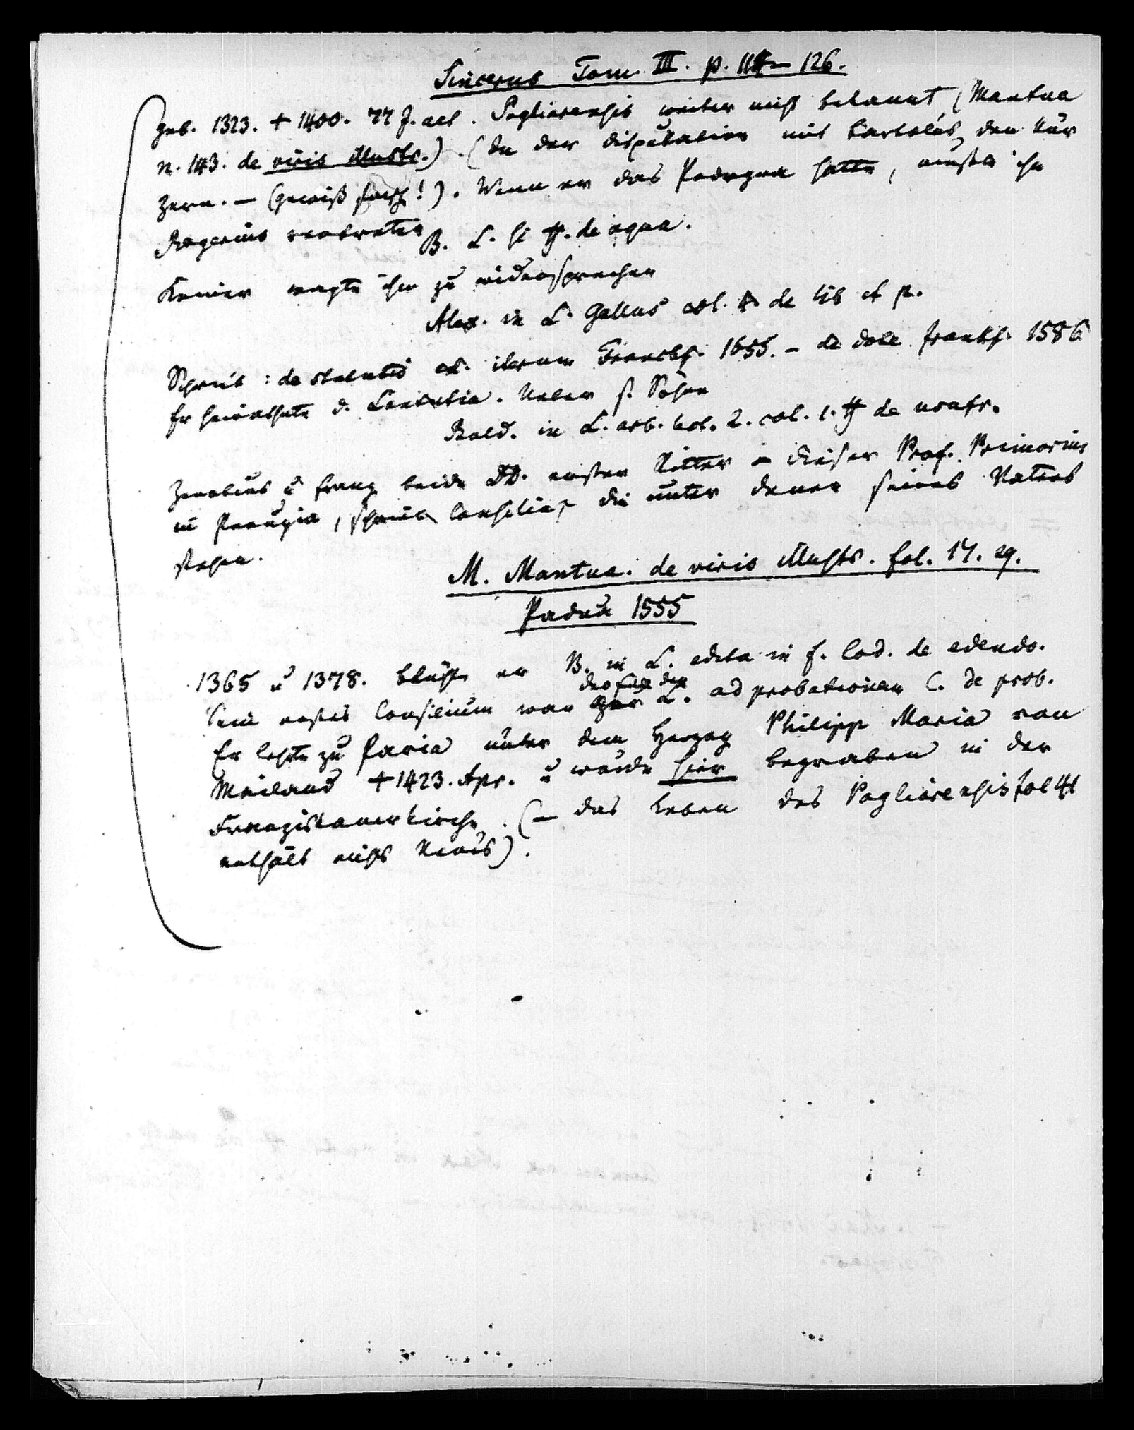 Sincerus Tom. III. p. 114 – 126.
geb. 1323. † 1400. 77 J. alt. Pagliarensis weiter nichts bekannt (Mantua
n. 143. de viris illustr.). (In der disputation mit Bartolus den kür
zern. – (gewiß falsch!). Wenn er das Podagra hatte, mußte ihn
Rogerius vertreten
B. L. si ff. de aqua.
Keiner wagte ihm zu widersprechen
Alex. in L. Gallus col. 4. de lib et p.
Schrieb: de statutis ed. iterum Francof. 1655. – de dote frankf. 1586
Er heirathete d. Landutia. Ueber s. Söhne
Bald. in L. arb. col. 2. col. 1. ff de usufr.
Zenobius u franz beide DD. erster Ritter – dieser Prof. Primarius
in Perugia, schrieb Consilia, die unter denen seines Vaters
stehen.
M. Mantua. de viris illustr. fol. 17. sq.
Padua 1555
1365 u 1378. blühte er B. in L. edita in f. Cod. de edendo.
Sein erstes Consilium war L. ad probationem C. de prob.
Er lehrte zu Pavia unter dem Herzog Philipp Maria von
Mailand † 1423. Apr. u wurde hier begraben in der
Franziskanerkirche. (– das Leben des Pagliarensis fol 41
enthält nichts Neues).